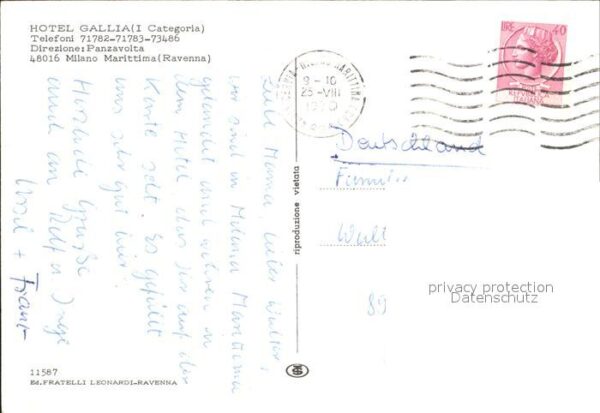 HOTEL GALLIA(I Categoria)
Telefoni 71782-71783-73486
Direzione:Panzavolta
48016 Milano Marittima(Ravenna)
Liebe Mama, lieber Walter,
wir sind in Milano Marittima
gelandet und wohnen in
dem Hotel das hier auf der
Karte steht. Es gefällt
uns sehr gut hier.
Herzliche Grüße
auch an
Ursel + Franz
11587
Ed.FRATELLI LEONARDI-RAVENNA
riproduzione vietata
LIRE 40
REPUBBLICA
ITALIANA
MARITTIMA
9-10
25-VIII
Deutschland
Familie
Walt
89
privacy protection
Datenschutz